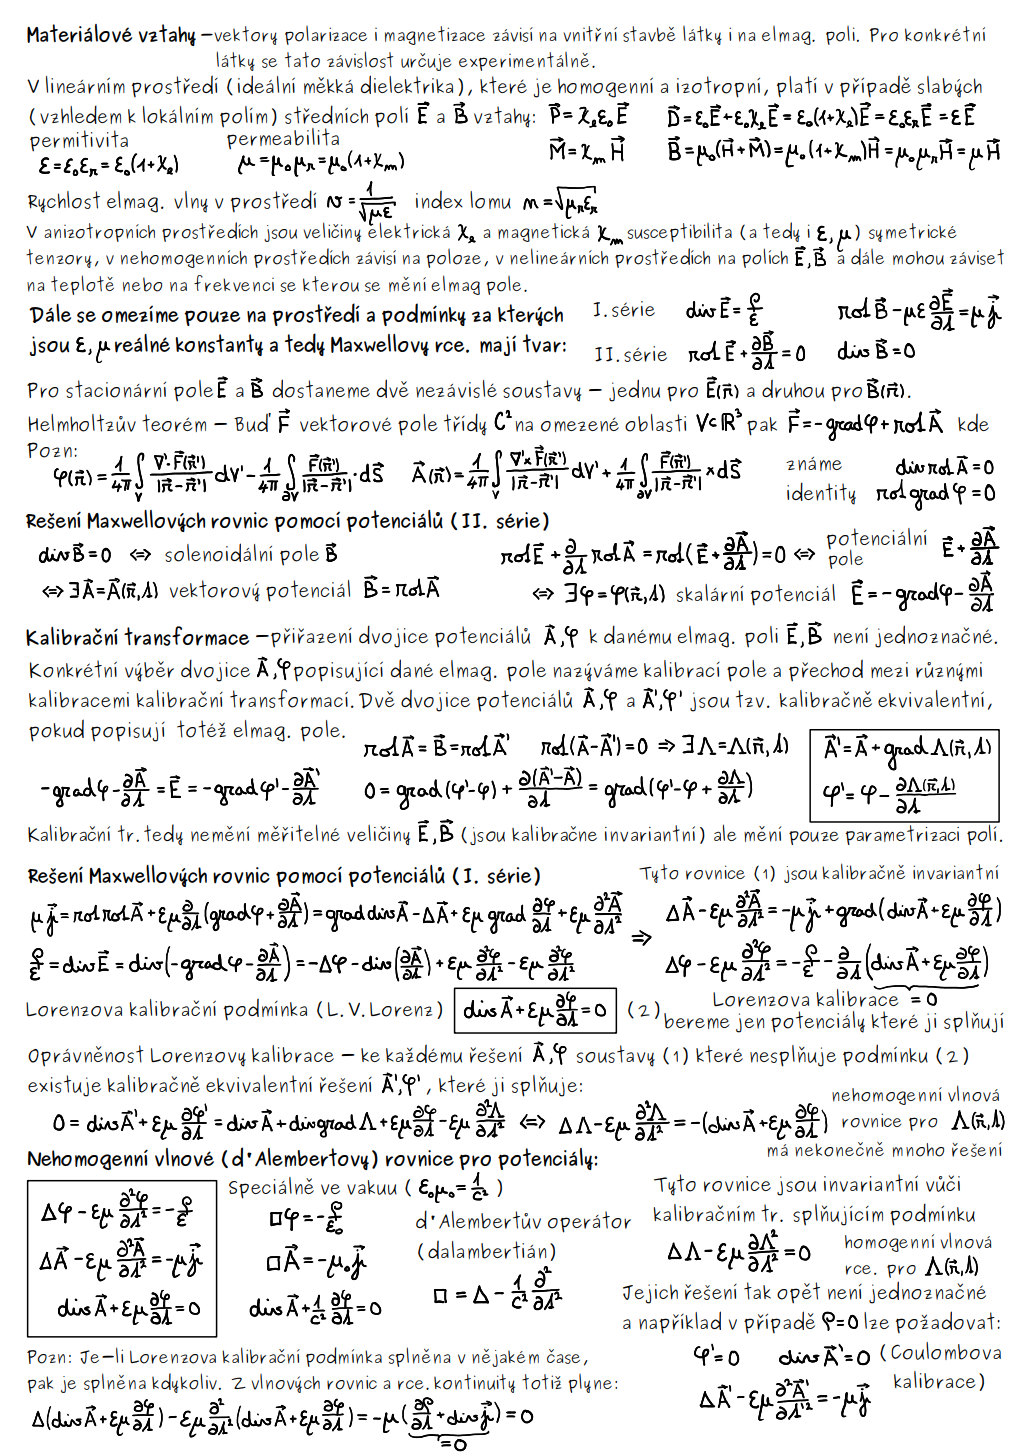 Materiálové vztahy – vektory polarizace i magnetizace závisí na vnitřní stavbě látky i na elmag. poli. Pro konkrétní
látky se tato závislost určuje experimentálně.
V lineárním prostředí (ideální měkká dielektrika), které je homogenní a izotropní, platí v případě slabých
(vzhledem k lokálním polím) středních polí E⃗ a B⃗ vztahy: P⃗ = χₑε₀E⃗   D⃗ = ε₀E⃗ + ε₀χₑE⃗ = ε₀(1+χₑ)E⃗ = ε₀εᵣE⃗ = εE⃗
permitivita   permeabilita   M⃗ = χₘH⃗   B⃗ = μ₀(H⃗+M⃗) = μ₀(1+χₘ)H⃗ = μ₀μᵣH⃗ = μH⃗
ε = ε₀εᵣ = ε₀(1+χₑ)   μ = μ₀μᵣ = μ₀(1+χₘ)
Rychlost elmag. vlny v prostředí v = 1/√(με)   index lomu n = √(μᵣεᵣ)
V anizotropních prostředích jsou veličiny elektrická χₑ a magnetická χₘ susceptibilita (a tedy i ε, μ) symetrické
tenzory, v nehomogenních prostředích závisí na poloze, v nelineárních prostředích na polích E⃗,B⃗ a dále mohou záviset
na teplotě nebo na frekvenci se kterou se mění elmag pole.
Dále se omezíme pouze na prostředí a podmínky za kterých   I. série   div E⃗ = ρ/ε   rot B⃗ − με ∂E⃗/∂t = μ j⃗
jsou ε, μ reálné konstanty a tedy Maxwellovy rce. mají tvar:   II. série   rot E⃗ + ∂B⃗/∂t = 0   div B⃗ = 0
Pro stacionární pole E⃗ a B⃗ dostaneme dvě nezávislé soustavy – jednu pro E⃗(r⃗) a druhou pro B⃗(r⃗).
Helmholtzův teorém – Buď F⃗ vektorové pole třídy C² na omezené oblasti V⊂ℝ³ pak F⃗ = −grad φ + rot A⃗ kde
Pozn:
φ(r⃗) = 1/4π ∫_V ∇'·F⃗(r⃗')/|r⃗−r⃗'| dV' − 1/4π ∫_∂V F⃗(r⃗')/|r⃗−r⃗'| · dS⃗   A⃗(r⃗) = 1/4π ∫_V ∇'×F⃗(r⃗')/|r⃗−r⃗'| dV' + 1/4π ∫_∂V F⃗(r⃗')/|r⃗−r⃗'| × dS⃗   známe   div rot A⃗ = 0
identity   rot grad φ = 0
Řešení Maxwellových rovnic pomocí potenciálů (II. série)
div B⃗ = 0 ⇔ solenoidální pole B⃗   rot E⃗ + ∂/∂t rot A⃗ = rot(E⃗ + ∂A⃗/∂t) = 0 ⇔ potenciální pole E⃗ + ∂A⃗/∂t
⇔ ∃A⃗ = A⃗(r⃗,t) vektorový potenciál B⃗ = rot A⃗   ⇔ ∃φ = φ(r⃗,t) skalární potenciál E⃗ = −grad φ − ∂A⃗/∂t
Kalibrační transformace – přiřazení dvojice potenciálů A⃗,φ k danému elmag. poli E⃗,B⃗ není jednoznačné.
Konkrétní výběr dvojice A⃗,φ popisující dané elmag. pole nazýváme kalibrací pole a přechod mezi různými
kalibracemi kalibrační transformací. Dvě dvojice potenciálů A⃗,φ a A⃗',φ' jsou tzv. kalibračně ekvivalentní,
pokud popisují totéž elmag. pole.
rot A⃗ = B⃗ = rot A⃗'   rot(A⃗−A⃗') = 0 ⇒ ∃Λ = Λ(r⃗,t)   A⃗' = A⃗ + grad Λ(r⃗,t)
−grad φ − ∂A⃗/∂t = E⃗ = −grad φ' − ∂A⃗'/∂t   0 = grad(φ'−φ) + ∂(A⃗'−A⃗)/∂t = grad(φ'−φ + ∂Λ/∂t)   φ' = φ − ∂Λ(r⃗,t)/∂t
Kalibrační tr. tedy nemění měřitelné veličiny E⃗,B⃗ (jsou kalibračne invariantní) ale mění pouze parametrizaci polí.
Řešení Maxwellových rovnic pomocí potenciálů (I. série)   Tyto rovnice (1) jsou kalibračně invariantní
μ j⃗ = rot rot A⃗ + εμ ∂/∂t (grad φ + ∂A⃗/∂t) = grad div A⃗ − ΔA⃗ + εμ grad ∂φ/∂t + εμ ∂²A⃗/∂t²   ⇒   ΔA⃗ − εμ ∂²A⃗/∂t² = −μ j⃗ + grad(div A⃗ + εμ ∂φ/∂t)
ρ/ε = div E⃗ = div(−grad φ − ∂A⃗/∂t) = −Δφ − div(∂A⃗/∂t) + εμ ∂²φ/∂t² − εμ ∂²φ/∂t²   Δφ − εμ ∂²φ/∂t² = −ρ/ε − ∂/∂t (div A⃗ + εμ ∂φ/∂t)
Lorenzova kalibrační podmínka (L.V.Lorenz)   div A⃗ + εμ ∂φ/∂t = 0   (2)   Lorenzova kalibrace = 0
bereme jen potenciály které ji splňují
Oprávněnost Lorenzovy kalibrace – ke každému řešení A⃗,φ soustavy (1) které nesplňuje podmínku (2)
existuje kalibračně ekvivalentní řešení A⃗',φ', které ji splňuje:
0 = div A⃗' + εμ ∂φ'/∂t = div A⃗ + div grad Λ + εμ ∂φ/∂t − εμ ∂²Λ/∂t² ⇔ ΔΛ − εμ ∂²Λ/∂t² = −(div A⃗ + εμ ∂φ/∂t)   nehomogenní vlnová
rovnice pro Λ(r⃗,t)
má nekonečně mnoho řešení
Nehomogenní vlnové (d'Alembertovy) rovnice pro potenciály:
Δφ − εμ ∂²φ/∂t² = −ρ/ε
ΔA⃗ − εμ ∂²A⃗/∂t² = −μ j⃗
div A⃗ + εμ ∂φ/∂t = 0
Speciálně ve vakuu (ε₀μ₀ = 1/c²)
□φ = −ρ/ε₀
□A⃗ = −μ₀ j⃗
div A⃗ + 1/c² ∂φ/∂t = 0
d'Alembertův operátor
(dalambertián)
□ = Δ − 1/c² ∂²/∂t²
Tyto rovnice jsou invariantní vůči
kalibračním tr. splňujícím podmínku
ΔΛ − εμ ∂Λ²/∂t² = 0   homogenní vlnová
rce. pro Λ(r⃗,t)
Jejich řešení tak opět není jednoznačné
a například v případě ρ=0 lze požadovat:
φ' = 0   div A⃗' = 0 (Coulombova
kalibrace)
ΔA⃗' − εμ ∂²A⃗'/∂t'² = −μ j⃗
Pozn: Je-li Lorenzova kalibrační podmínka splněna v nějakém čase,
pak je splněna kdykoliv. Z vlnových rovnic a rce. kontinuity totiž plyne:
Δ(div A⃗ + εμ ∂φ/∂t) − εμ ∂²/∂t² (div A⃗ + εμ ∂φ/∂t) = −μ(∂ρ/∂t + div j⃗) = 0
=0